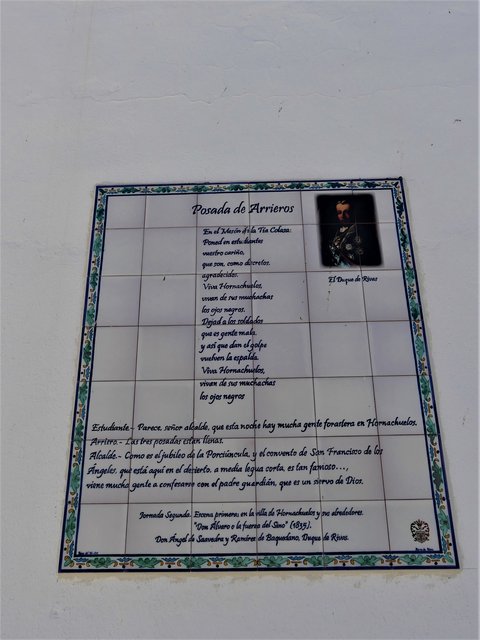 Posada de Arrieros
En el Mesón de la Tía Colasa:
Poned en estudiantes
vuestro cariño,
que son, como discretos,
agradecidos.
Viva Hornachuelos,
vivan de sus muchachas
los ojos negros.
Dejad a los soldados
que es gente mala,
y así que dan el golpe
vuelven la espalda.
Viva Hornachuelos,
vivan de sus muchachas
los ojos negros
El Duque de Rivas
Estudiante.- Parece, señor alcalde, que esta noche hay mucha gente forastera en Hornachuelos.
Arriero.- Las tres posadas están llenas.
Alcalde.- Como es el jubileo de la Porciúncula, y el convento de San Francisco de los
Ángeles, que está aquí en el desierto, a media legua corta, es tan famoso...,
viene mucha gente a confesarse con el padre guardián, que es un siervo de Dios.
Jornada Segunda. Escena primera; en la villa de Hornachuelos y sus alrededores.
"Don Álvaro o la fuerza del Sino" (1835).
Don Ángel de Saavedra y Ramírez de Baquedano, Duque de Rivas.